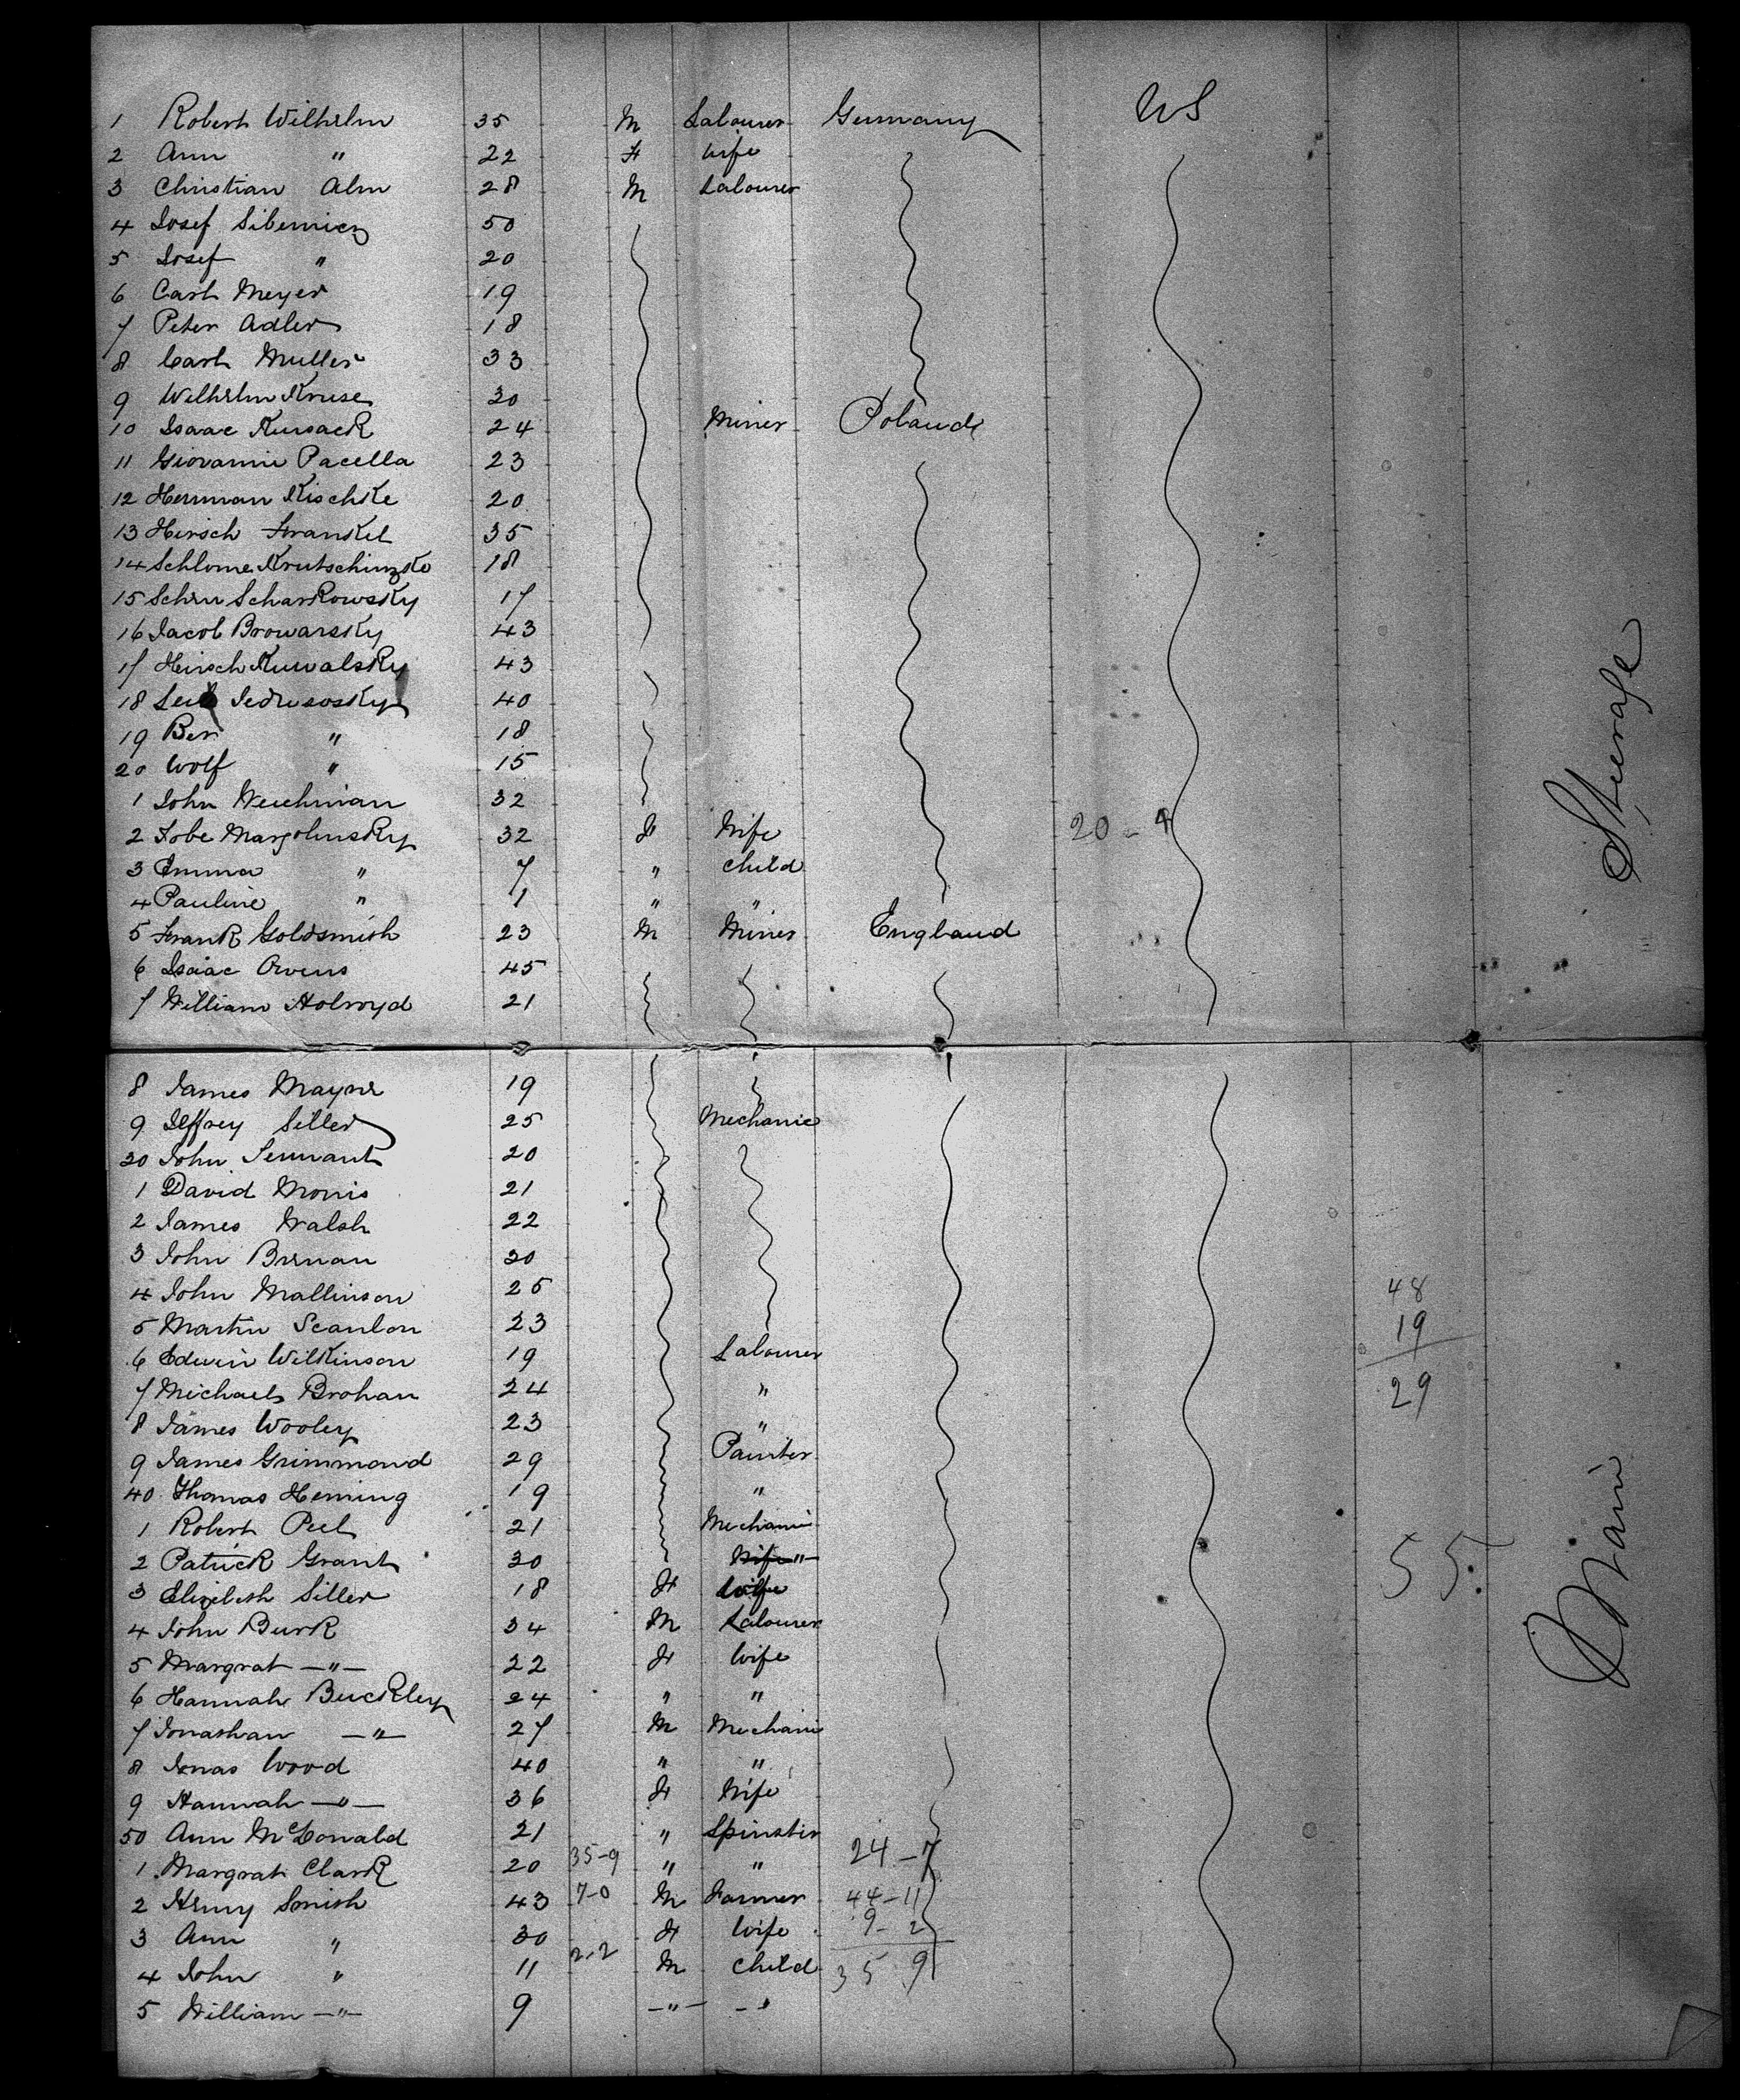 1 Robert Wilhelm 35 M Labourer Germany US
2 Ann " 22 F Wife
3 Christian Alm 28 M Labourer
4 Josef Sibernicz 50
5 Josef " 20
6 Carl Meyer 19
7 Peter Adler 18
8 Carl Muller 33
9 Wilhelm Kruse 30
10 Isaac Kursack 24 Miner Poland
11 Giovanni Pacella 23
12 Herrman Kischke 20
13 Hirsch Frankel 35
14 Schlome Krutschinzko 18
15 Scharkowsky 17
16 Jacob Browarsky 43
17 Hirsch Kuwalsky 43
18 40
19 Ber " 18
20 Wolf " 15
1 John Weichman 32
2 Tobe Margolinsky 32 F Wife 20-4
3 Emma " 7 " Child
4 Pauline " 1 " "
5 Frank Goldsmith 23 M Miner England
6 Isaac Owens 45
7 William Holroyd 21
Steerage
8 James Mayne 19
9 Jeffrey Siller 25 Mechanic
30 John Tennant 20
1 David Morris 21
2 James Walsh 22
3 John Brenan 30
4 John Mallinson 25 48
5 Martin Scanlon 23 19
6 Edwin Wilkinson 19 Labourer
7 Michael Brohan 24 " 29
8 James Wooley 23 "
9 James Grimmond 29 Painter
40 Thomas Heming 19 "
1 Robert Peel 21 Mechanic
2 Patrick Grant 30 Wife " 55
3 Elizabeth Siller 18 F Wife
4 John Burk 34 M Labourer
5 Margrat —"— 22 F Wife
6 Hannah Buckley 24 " "
7 Jonathan —"— 27 M Mechanic
8 Jonas Wood 40 " "
9 Hannah —"— 36 F Wife
50 Ann McDonald 21 " Spinster
1 Margrat Clark 20 35-9 " " 24-7
2 Henry Smith 43 7-0 M Farmer 44-11
3 Ann " 30 F Wife 9-2
4 John " 11 2-2 M Child 35 9
5 William —"— 9 —"— —"
Main